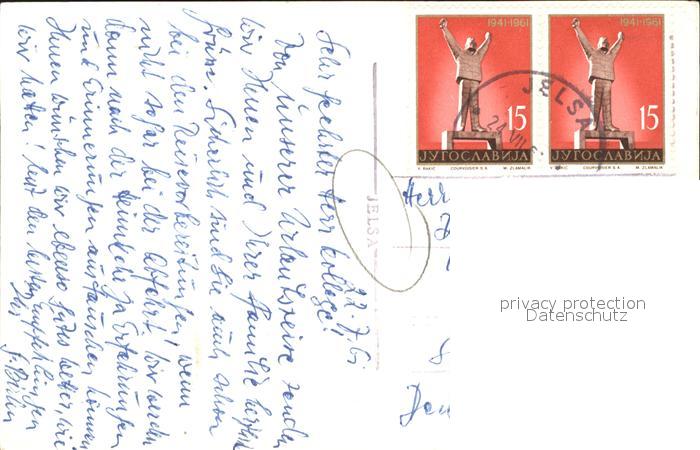 22.7.61
Sehr geehrter Herr Kollege!
Von unserer Urlaubsreise senden
wir Ihnen und Ihrer Familie herzliche
Grüsse. Sicherlich sind Sie auch schon
bei den Reisevorbereitungen, wenn
nicht sogar bei der Abfahrt. Wir werden
dann nach der Heimkehr ja Erfahrungen
und Erinnerungen austauschen können.
Ihnen wünschen wir ebenso gutes Wetter wie
wir hatten! Mit den besten Empfehlungen
Ihr
JELSA
1941-1961
15
ЈУГОСЛАВИЈА
V. RAKIĆ COURVOISIER S.A. M. ZLAMALIK
1941-1961
15
ЈУГОСЛАВИЈА
V. RAKIĆ COURVOISIER S.A. M. ZLAMALIK
JELSA
24 VII 6
Herr
privacy protection
Datenschutz